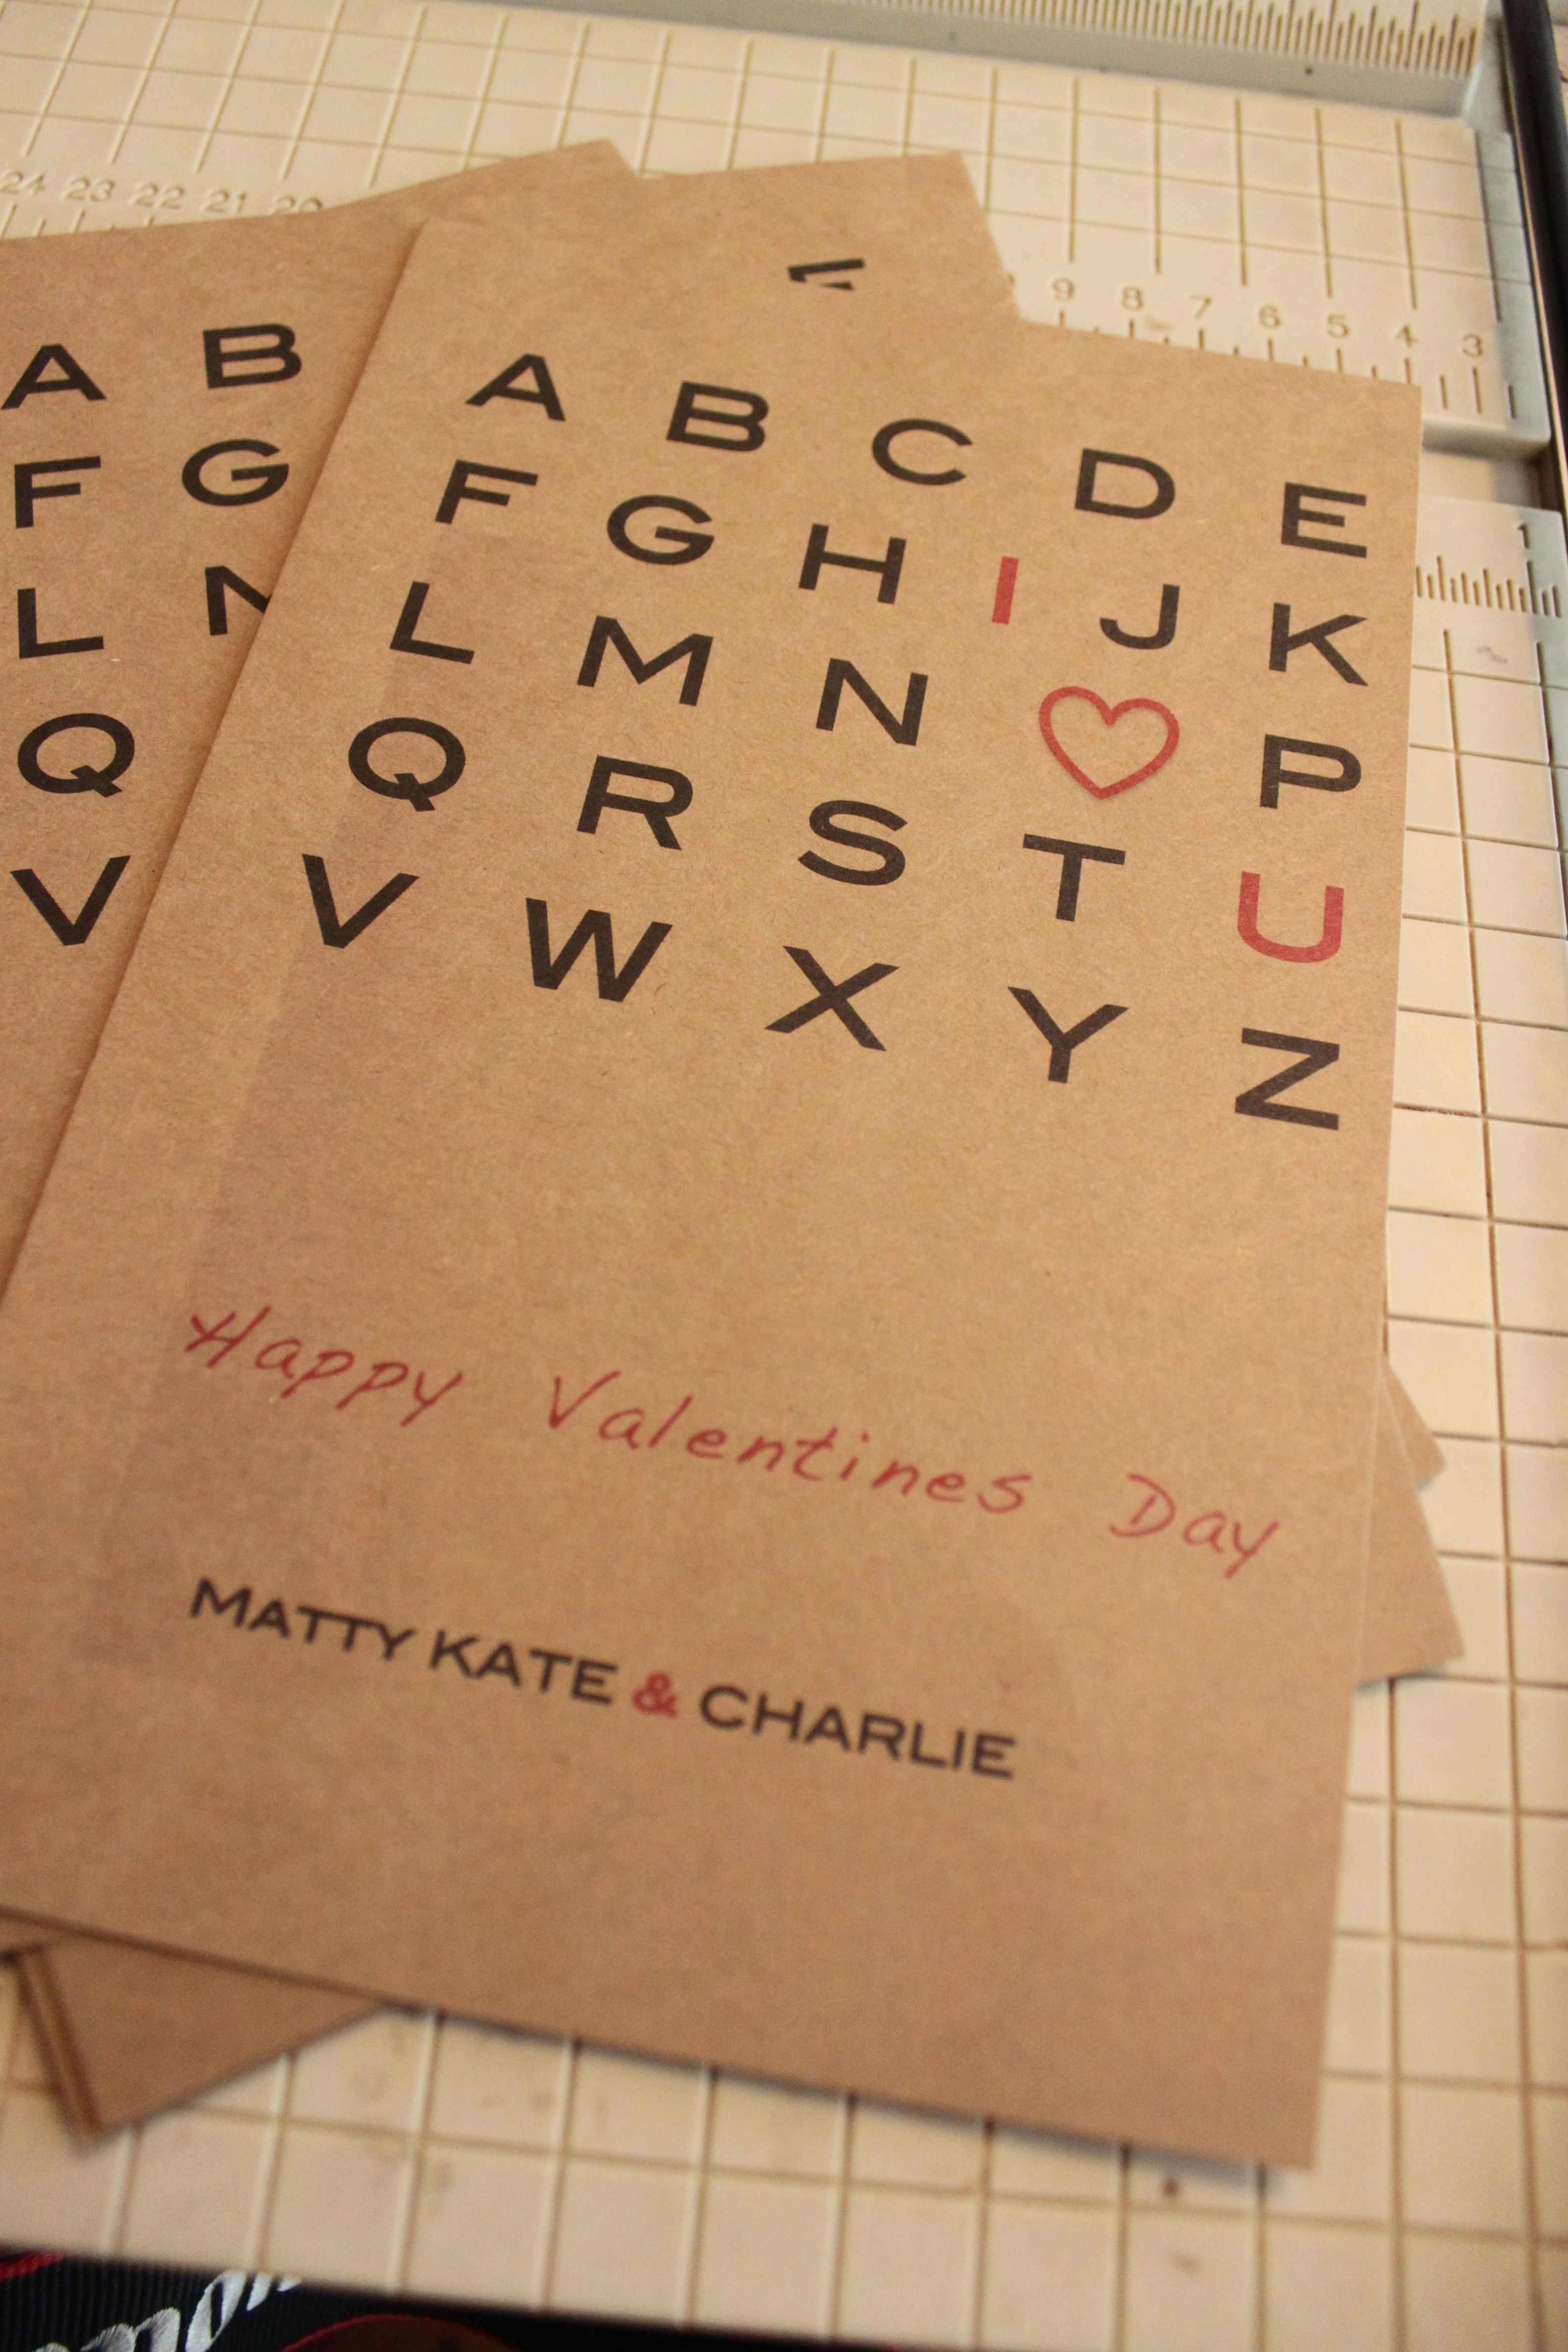 24 23 22 21 20
9 8 7 6 5 4 3
1
A B
F G
L
Q
V
A B C D E
F G H I J K
L M N ♡ P
Q R S T U
V W X Y Z
Happy Valentines Day
MATTY KATE & CHARLIE